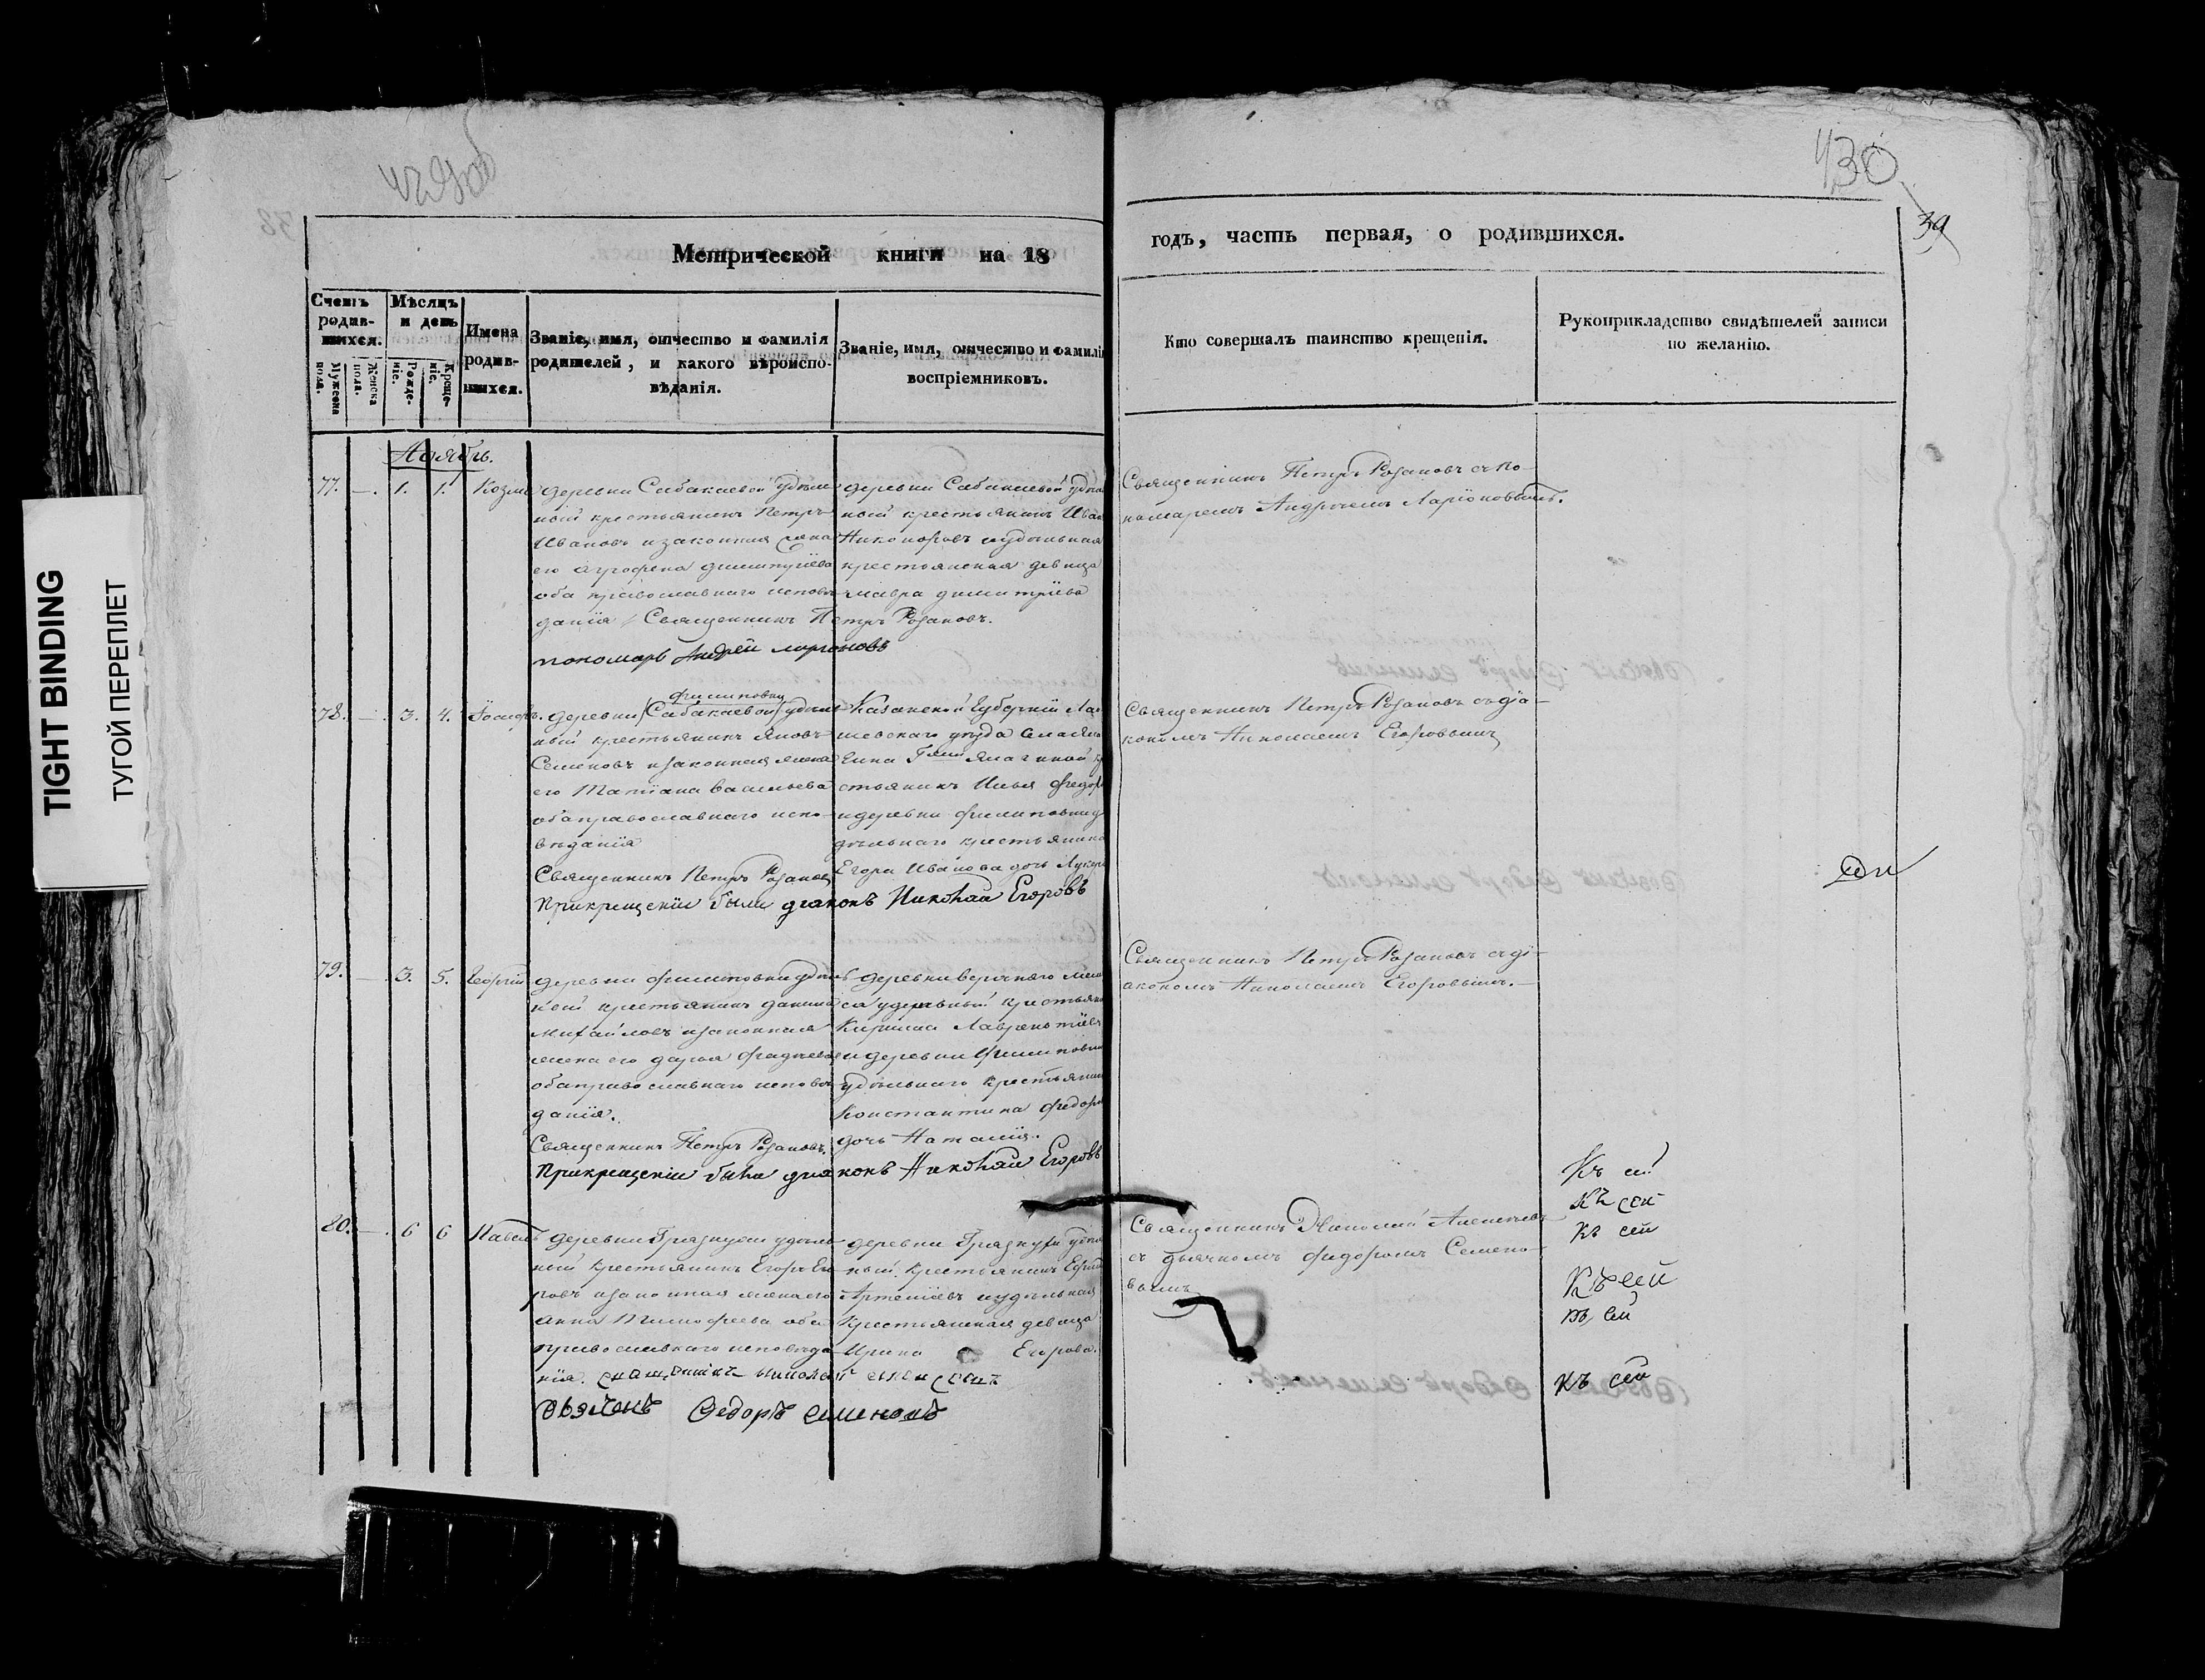 430
39
38
TIGHT BINDING
ТУГОЙ ПЕРЕПЛЕТ
Метрической книги на 18
годъ, часть первая, о родившихся.
Счетъ родив-шихся.
Мужеска пола.
Женска пола.
Мѣсяцъ и день
Рожде-ніе.
Креще-ніе.
Имена родив-шихся.
Званіе, имя, отчество и фамилія
родителей, и какого вѣроиспо-
вѣданія.
Званіе, имя, отчество и фамилія
воспріемниковъ.
Кто совершалъ таинство крещенія.
Рукоприкладство свидѣтелей записи
по желанію.
Ноябрь.
77. — 1. 1. Козма
деревни Сабакаевой удѣль
ный крестьянинъ Петръ
Ивановъ изаконная жена
его Агрофена димитріева
оба православнаго исповѣ
данія Священникъ Петръ Розановъ.
пономарь Андрей ларионовъ
деревни Сабакаевой удѣль
ный крестьянинъ Иван
Никоноровъ иудѣльная
крестьянская девица
мавра димитріева
Священникъ Петръ Розановъ спо-
номаремъ Андреемъ Ларіоновымъ.
78. — 3. 4. Іосифъ.
филиповки
деревни Сабакаевой удѣль
ный крестьянинъ Яковъ
Семеновъ изаконная жена
его Татіана васильева
обаправославнаго испо-
вѣданія
Священникъ Петръ Розановъ
Прикрещеніи были диаконъ Николаи Егоровъ
Казанской Губерніи Ла
шевскаго уѣзда
стьянинъ Илья Федор
идеревни филиповки у
дѣльнаго крестьянина
Егора Иванова дочь Лукер
Священникъ Петръ Розановъ съдіа-
кономъ Николаемъ Егоровымъ
79. — 3. 5. Георгій
деревни филиповки удѣль
ный крестьянинъ данила
михайловъ изаконная
жена его дарья фадѣева
обаправославнаго исповѣ
данія.
Священникъ Петръ Розановъ.
Прикрещеніи были диаконъ Николаи Егоровъ
деревни верхняго мел
са удельный крестьянин
Кирила Лаврентіевъ
идеревни филиповки
удѣльнаго крестьянин
Константина федор
дочь Наталія.
Священникъ Петръ Розановъ съді-
акономъ Николаемъ Егоровымъ.
80. — 6 6 Павелъ
деревни Грязнухи удѣль
ный крестьянинъ Егоръ Ег
ровъ изаконная женаего
анна Тимофеева оба
православнаго исповѣда
нія.
Дьячекъ Федоръ семеновъ
деревни Грязнухи удѣль
ный крестьянинъ
Артемьевъ иудѣльная
Крестьянская девица
Ирина Егорова.
Священникъ Николай Алексѣевъ
съ дьячкомъ фидоромъ Семено-
вымъ
Къ сей
къ сей
къ сей
Къ сей
къ сей
къ сей